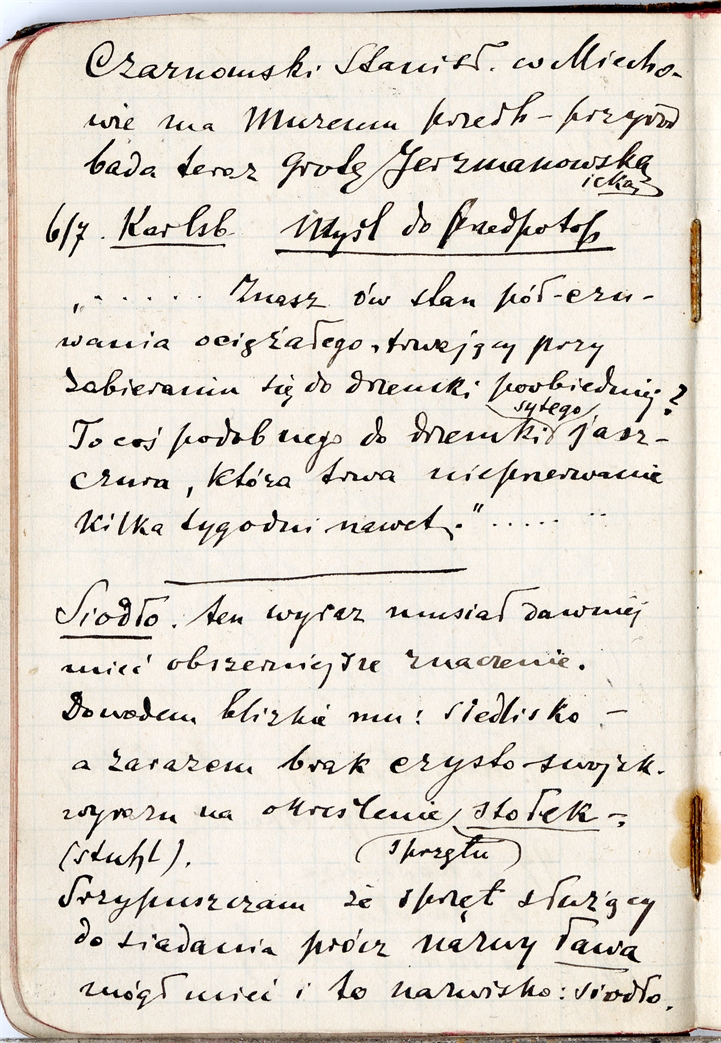 Czarnowski Stanisł. w Miecho-
wie ma Muzeum przedh - przyrod
bada teraz grotę Jerzmanowską
icką
6/7. Karlsb. Myśl do Przedpotop
„ . . . . . . Znasz ów stan pół-czu-
wania ociężałego, trwający przy
zabieraniu się do drzemki poobiedniej?
sytego
To coś podobnego do drzemki jasz-
czura, która trwa nieprzerwanie
kilka tygodni nawet." . . . . . . .
Siodło. ten wyraz musiał dawniej
mieć obszerniejsze znaczenie.
Dowodem blizkie mu: siedlisko -
a zarazem brak czysto-swojsk.
wyrazu na określenie stołek -
(stuhl). sprzętu
Przypuszczam że sprzęt służący
do siadania prócz nazwy ława
mógł mieć i to nazwisko: siodło.